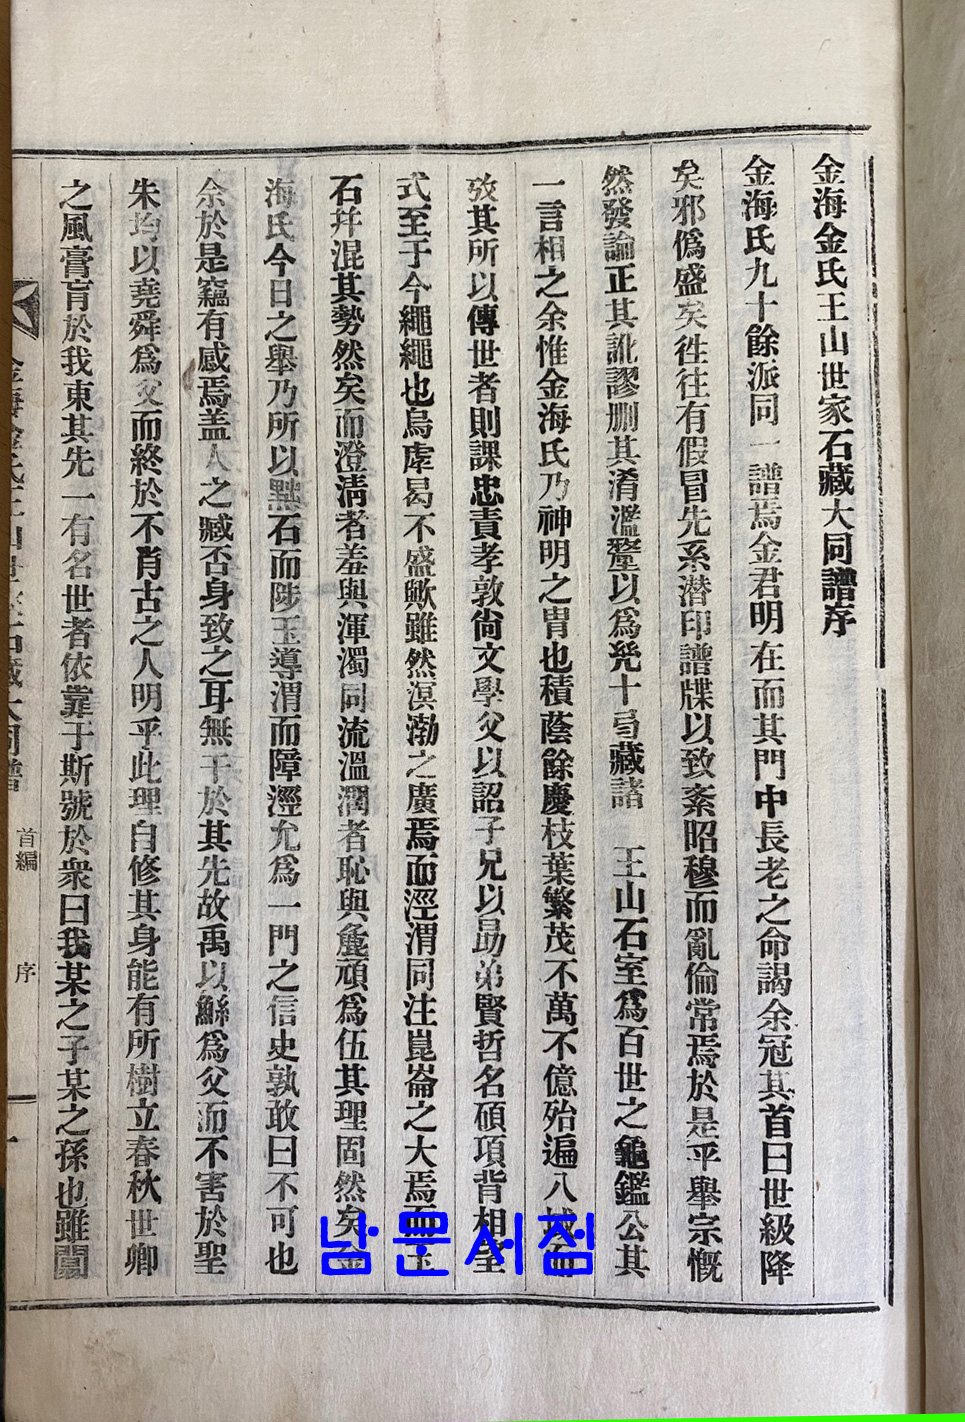 金海金氏王山世家石藏大同譜序
金海氏九十餘派同一譜焉金君明在而其門中長老之命謁余冠其首曰世級降
矣邪僞盛矣徃往有假冒先系潜印譜牒以致紊昭穆而亂倫常焉於是乎舉宗慨
然發論正其訛謬删其淆濫釐以爲凳十弓藏諸 王山石室爲百世之龜鑑公其
一言相之余惟金海氏乃神明之胄也積蔭餘慶枝葉繁茂不萬不億殆遍八域而
攷其所以傳世者則課忠責孝敦尙文學父以詔子兄以勗弟賢哲名碩項背相望
式至于今繩繩也烏虖曷不盛歟雖然溟渤之廣焉而涇渭同注崑崙之大焉而玉
石幷混其勢然矣而澄淸者羞與渾濁同流溫潤者恥與麁頑爲伍其理固然矣金
海氏今日之舉乃所以黜石而陟玉導渭而障涇允爲一門之信史孰敢曰不可也
余於是竊有感焉盖人之臧否身致之耳無干於其先故禹以鯀爲父而不害於聖
朱均以堯舜爲父而終於不肖古之人明乎此理自修其身能有所樹立春秋世卿
之風膏肓於我東其先一有名世者依靠于斯號於衆曰我某之子某之孫也雖闒
金海金氏王山世家石藏大同譜 首編 序 一
남문서점